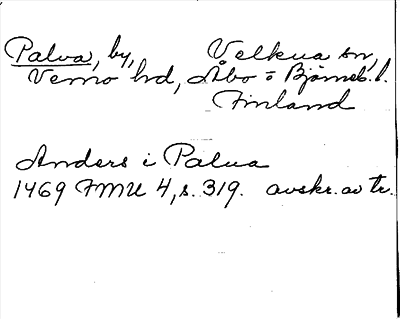 Palva, by, Velkua sn,
Vemo hd, Åbo o Björneb. l.
Finland
Anders i Palua
1469 FMU 4, s. 319. avskr. av tr.